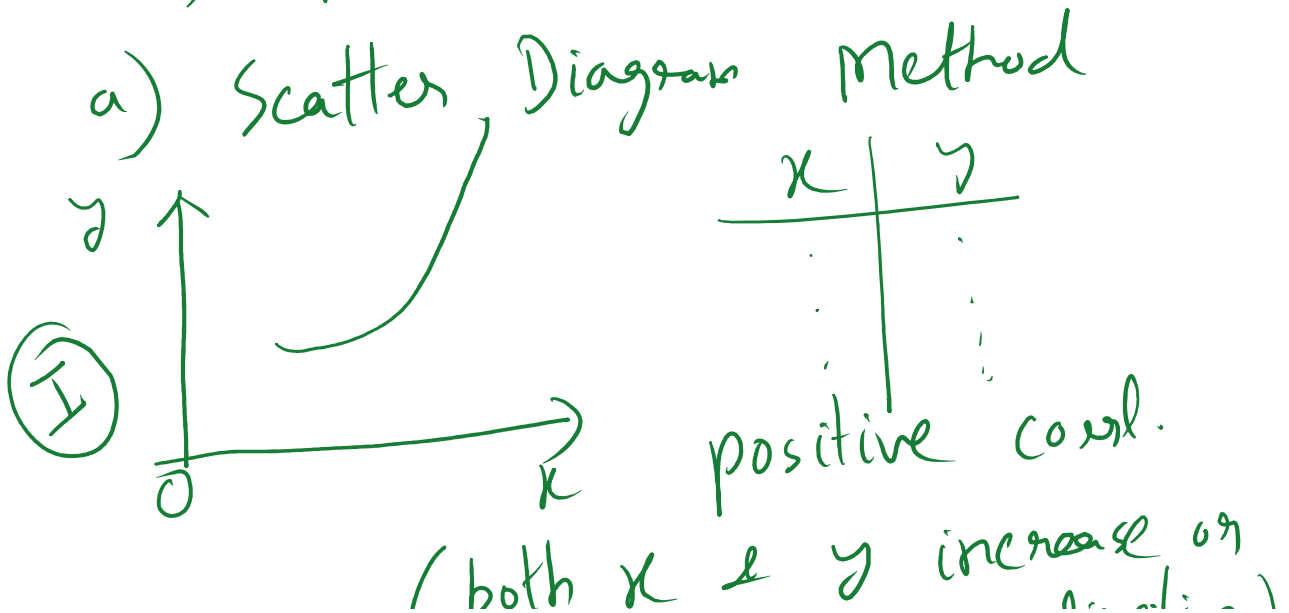 a) Scatter Diagram Method
x y
y
I
O x
positive corl.
(both x & y increase or